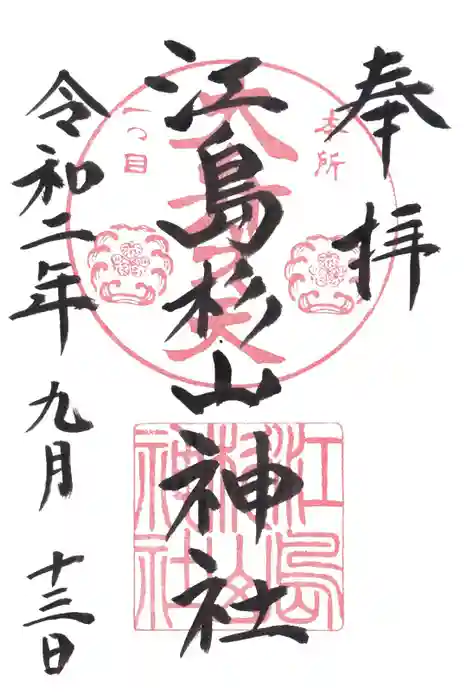 奉拝
本所
一つ目
江島杉山神社
江島杉山神社
令和二年 九月 十三日